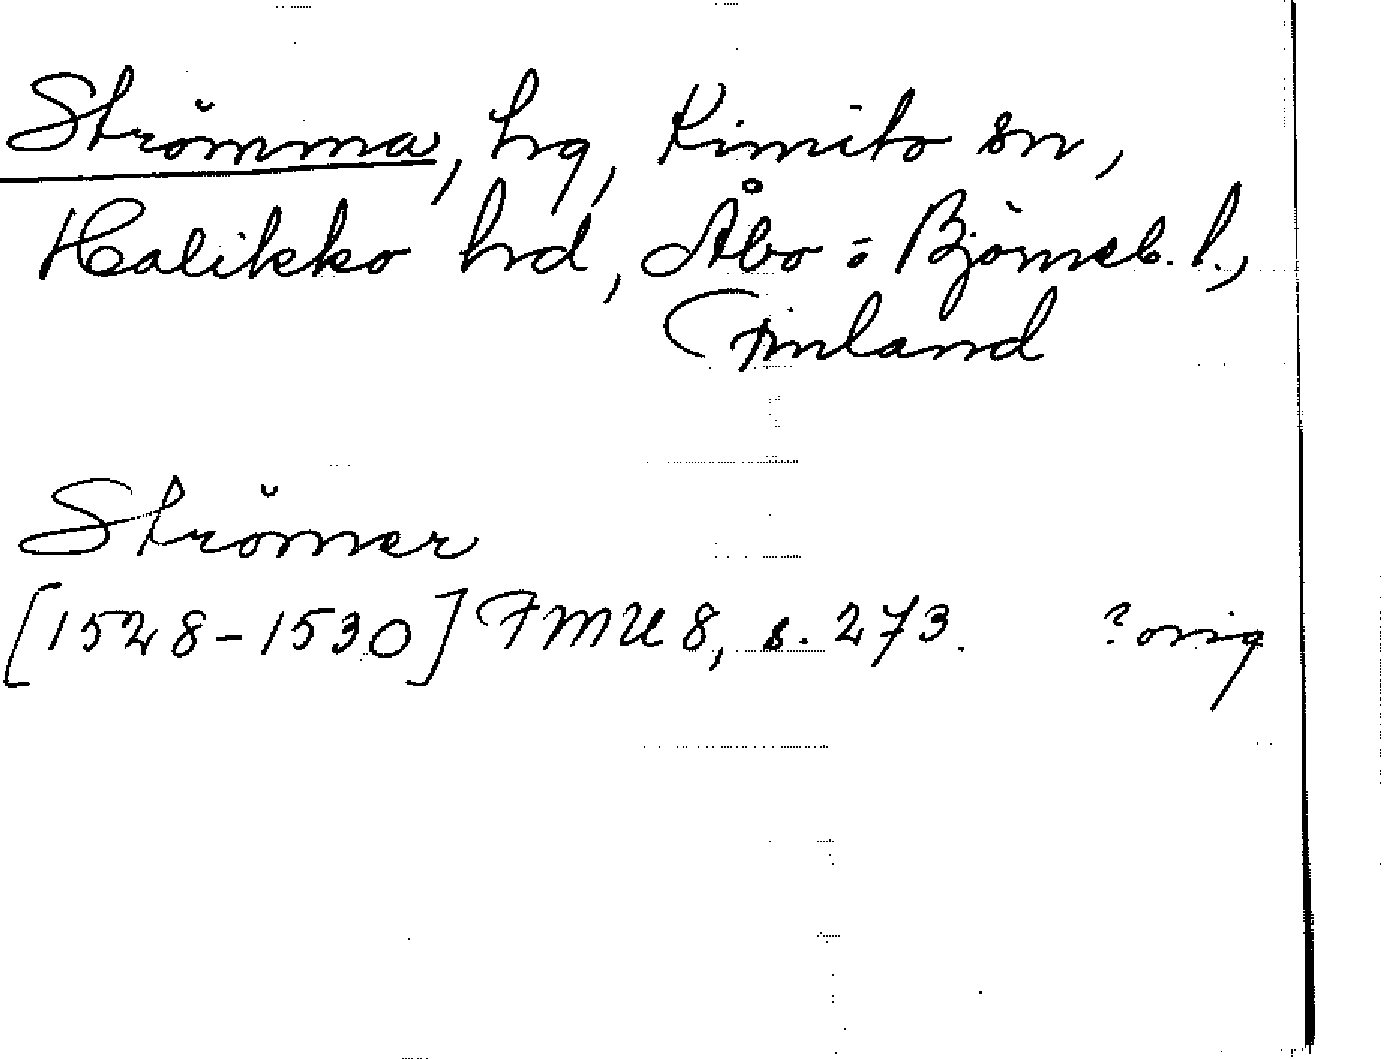 Strömma, hrg, Kimito sn,
Halikko hrd, Åbo = Björneb. l.,
Finland
Strömer
[1528-1530] FMU 8, s. 273. ? orig